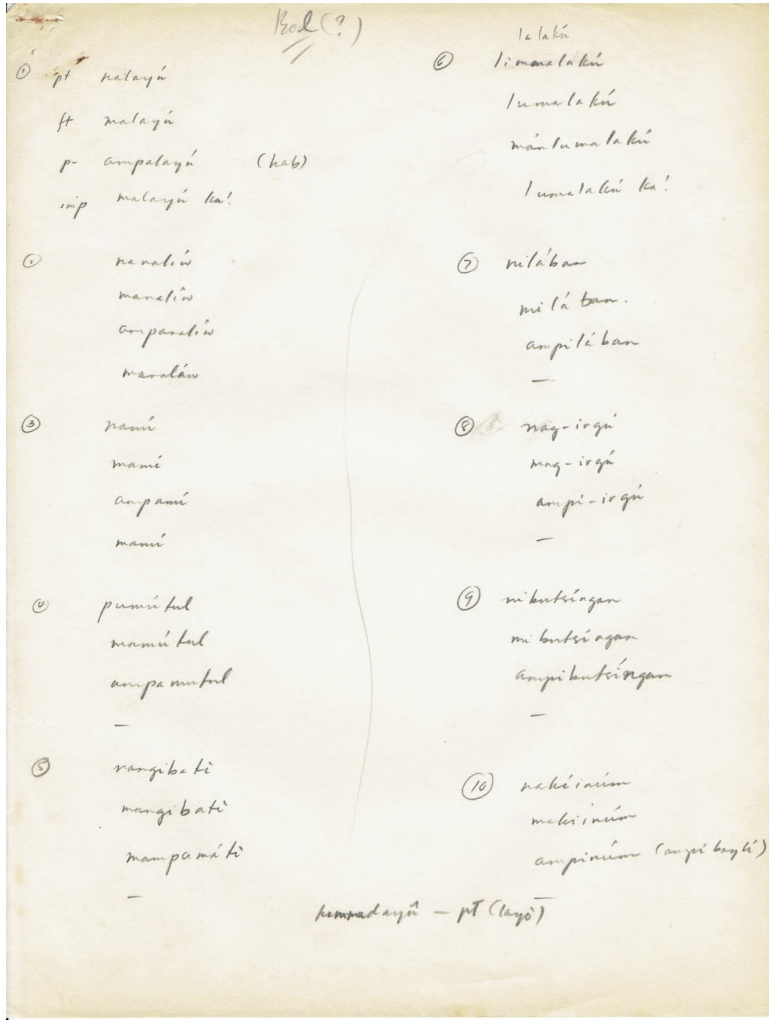 Bol (?)
① pt nalayú
ft malayú
p- ampalayú (hab)
imp malayú ka!
② nanalíw
manalíw
ampanalíw
manaláw
③ namí
mamí
ampamí
mamí
④ pumútul
mamútul
ampamutul
—
⑤ nangibatì
mangibatì
mampamátì
—
lalakú
⑥ limmalakú
lumalakú
mánlumalakú
lumalakú ka!
⑦ nilában
milában.
ampilában
—
⑧ nag-irgú
mag-irgú
ampi-irgú
—
⑨ nibutsíngan
mibutsíngan
ampibutsíngan
—
⑩ nakiinúm
makiinúm
ampinúm
dayû — pT (layô)